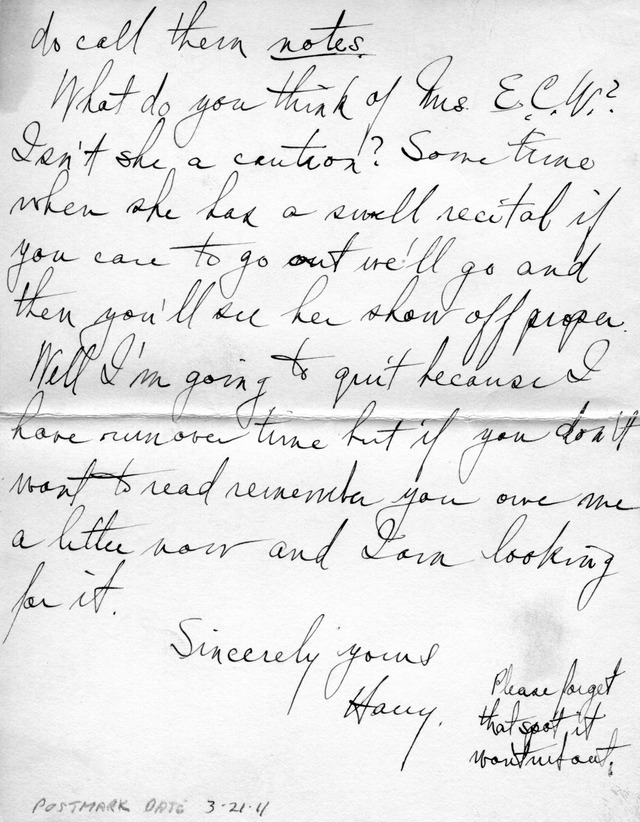 do call them notes.
What do you think of Mrs. E.C.W.?
Isn't she a caution? Some time
when she has a swell recital if
you care to go out we'll go and
then you'll see her show off proper.
Well I'm going to quit because I
have run over time but if you don't
want to read remember you owe me
a letter now and I am looking
for it.
Sincerely yours
Harry.
Please forget
that spot it
wont rub out.
POSTMARK DATE 3-21-11